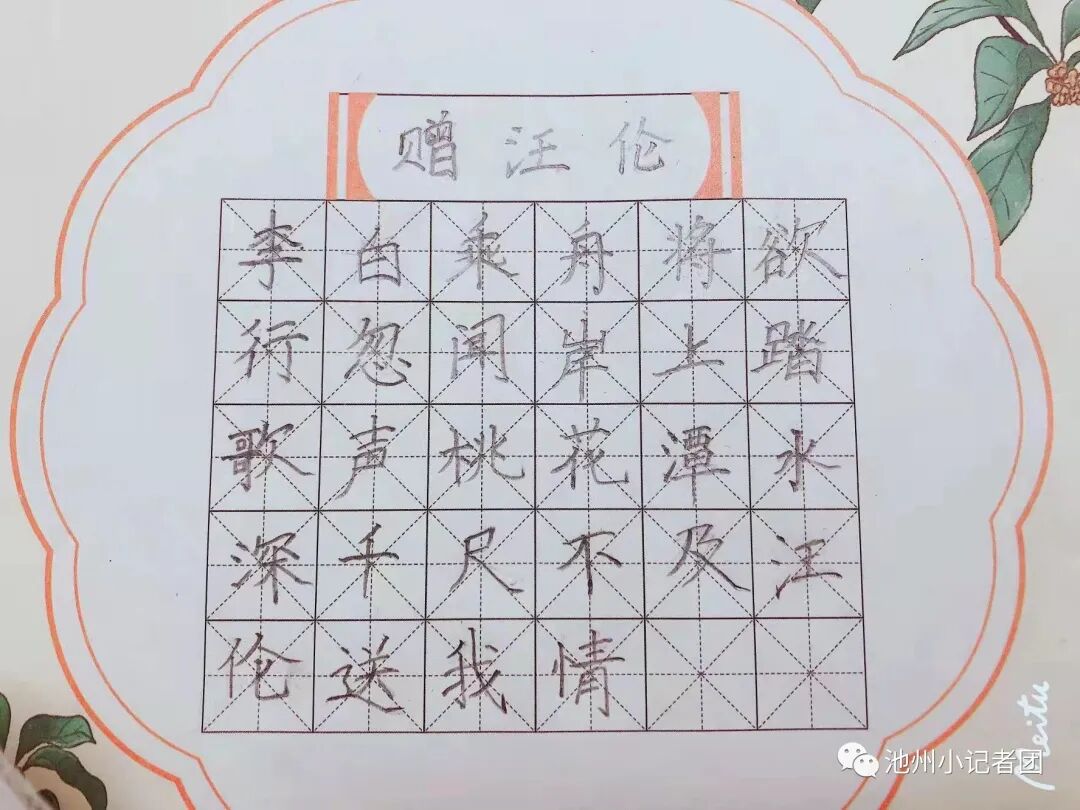 赠汪伦
李白乘舟将欲
行忽闻岸上踏
歌声桃花潭水
深千尺不及汪
伦送我情
Meitu
池州小记者团